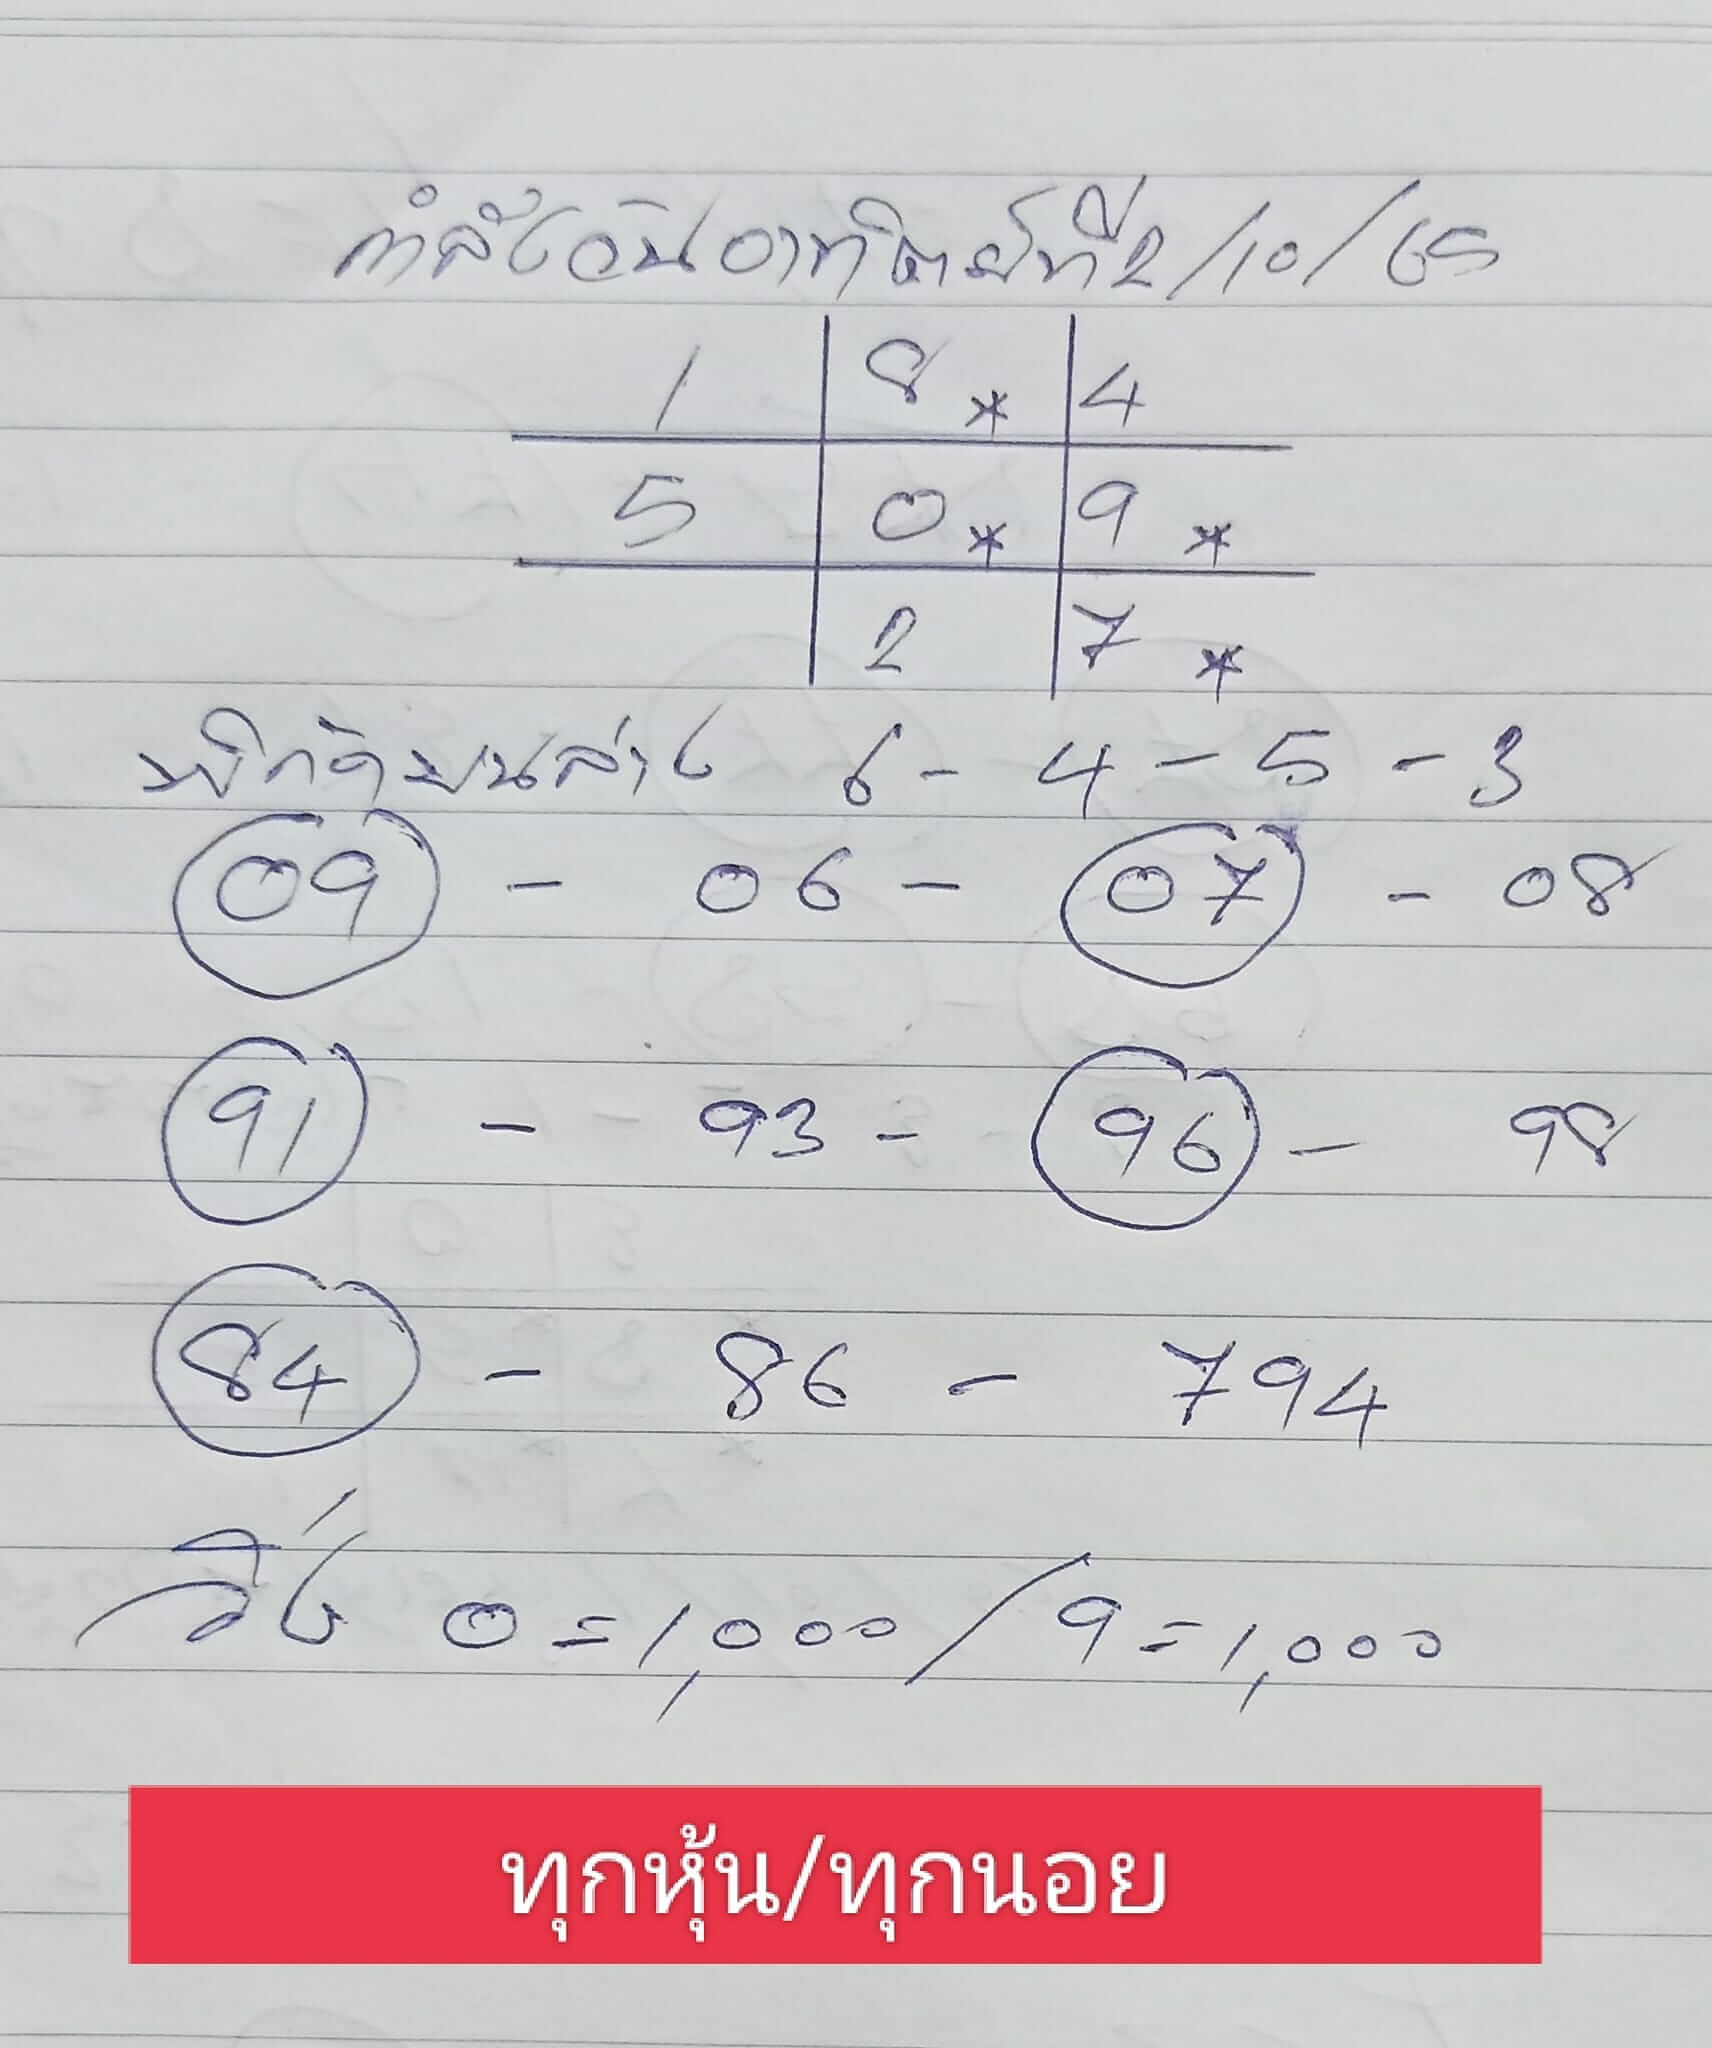 กำลังวันอาทิตย์ที่2/10/65
1 8* 4
5 0* 9*
2 7*
พิกัดบนล่าง 6-4-5-3
09 - 06 - 07 - 08
91 - 93 - 96 - 98
84 - 86 - 794
วิ่ง 0=1,000/9=1,000
ทุกหุ้น/ทุกนอย